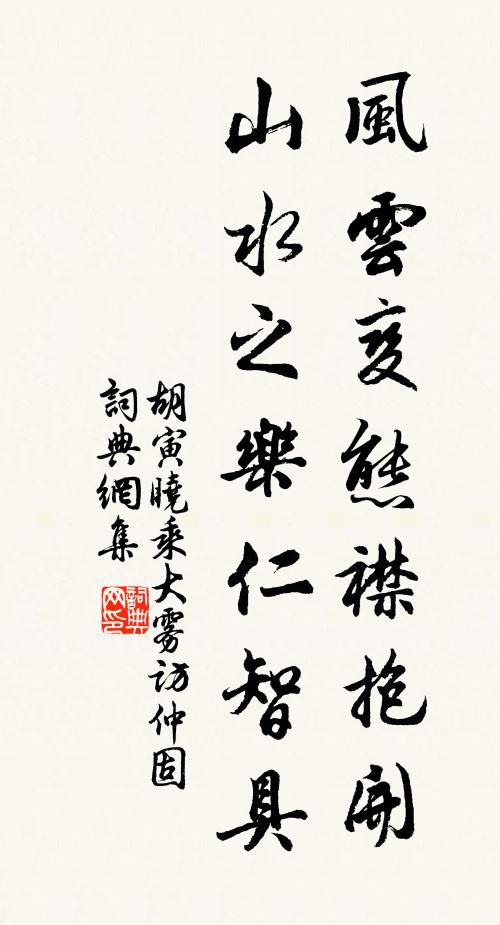 風雲变態襟抱開
山水之樂仁智具
胡寅曉乘大雾訪仲固
詞典網集
詞典
网印